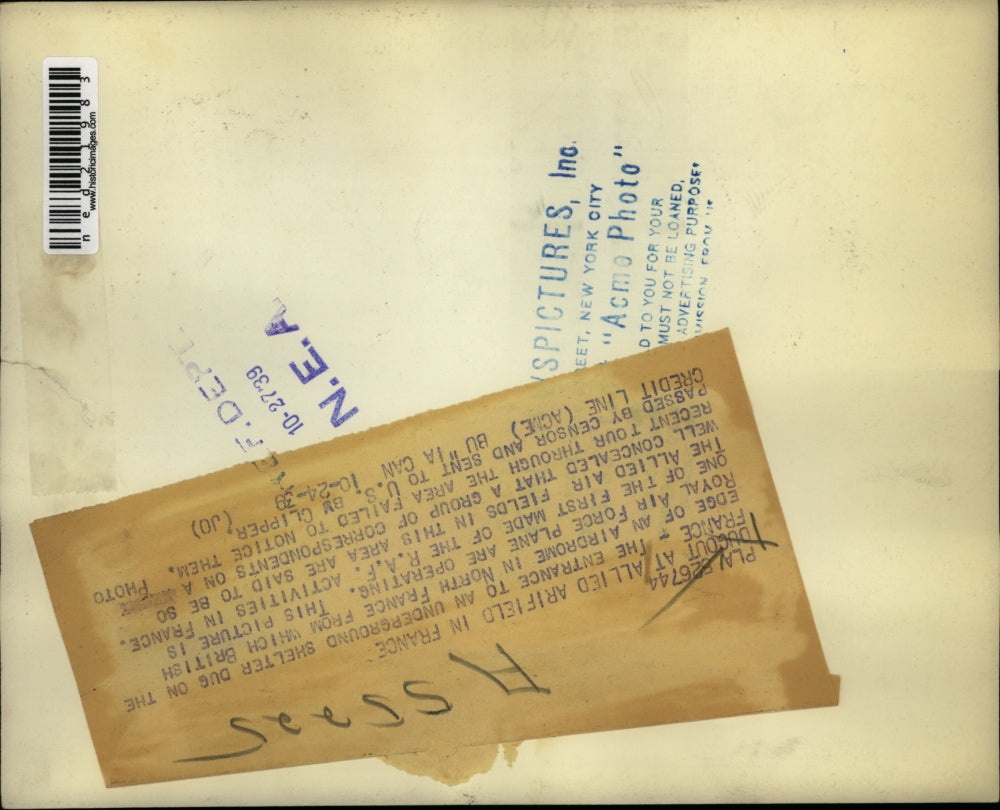 ned21983
www.historicimages.com
NSPICTURES, Inc.
EET, NEW YORK CITY
"Acme Photo"
D TO YOU FOR YOUR
MUST NOT BE LOANED,
ADVERTISING PURPOSES
MISSION FROM US
F. DEPT.
10-27-39
N.E.A.
F26744
DUGOUT AT ALLIED ARIFIELD IN FRANCE
FRANCE THE ENTRANCE TO AN UNDERGROUND SHELTER DUG ON THE
EDGE OF AN AIRDROME IN NORTH FRANCE FROM WHICH BRITISH
ROYAL AIR FORCE PLANE ARE OPERATING. THIS PICTURE IS
ONE OF THE FIRST MADE OF THE R.A.F. ACTIVITIES IN FRANCE.
THE ALLIED AIR FIELDS IN THIS AREA ARE SAID TO BE SO
WELL CONCEALED THAT A GROUP OF CORRESPONDENTS ON A
RECENT TOUR THROUGH THE AREA FAILED TO NOTICE THEM. PHOTO
PASSED BY CENSOR AND SENT TO U.S. BY CLIPPER.
CREDIT LINE (ACME) BU VIA CAN 10-24-39 (JO)